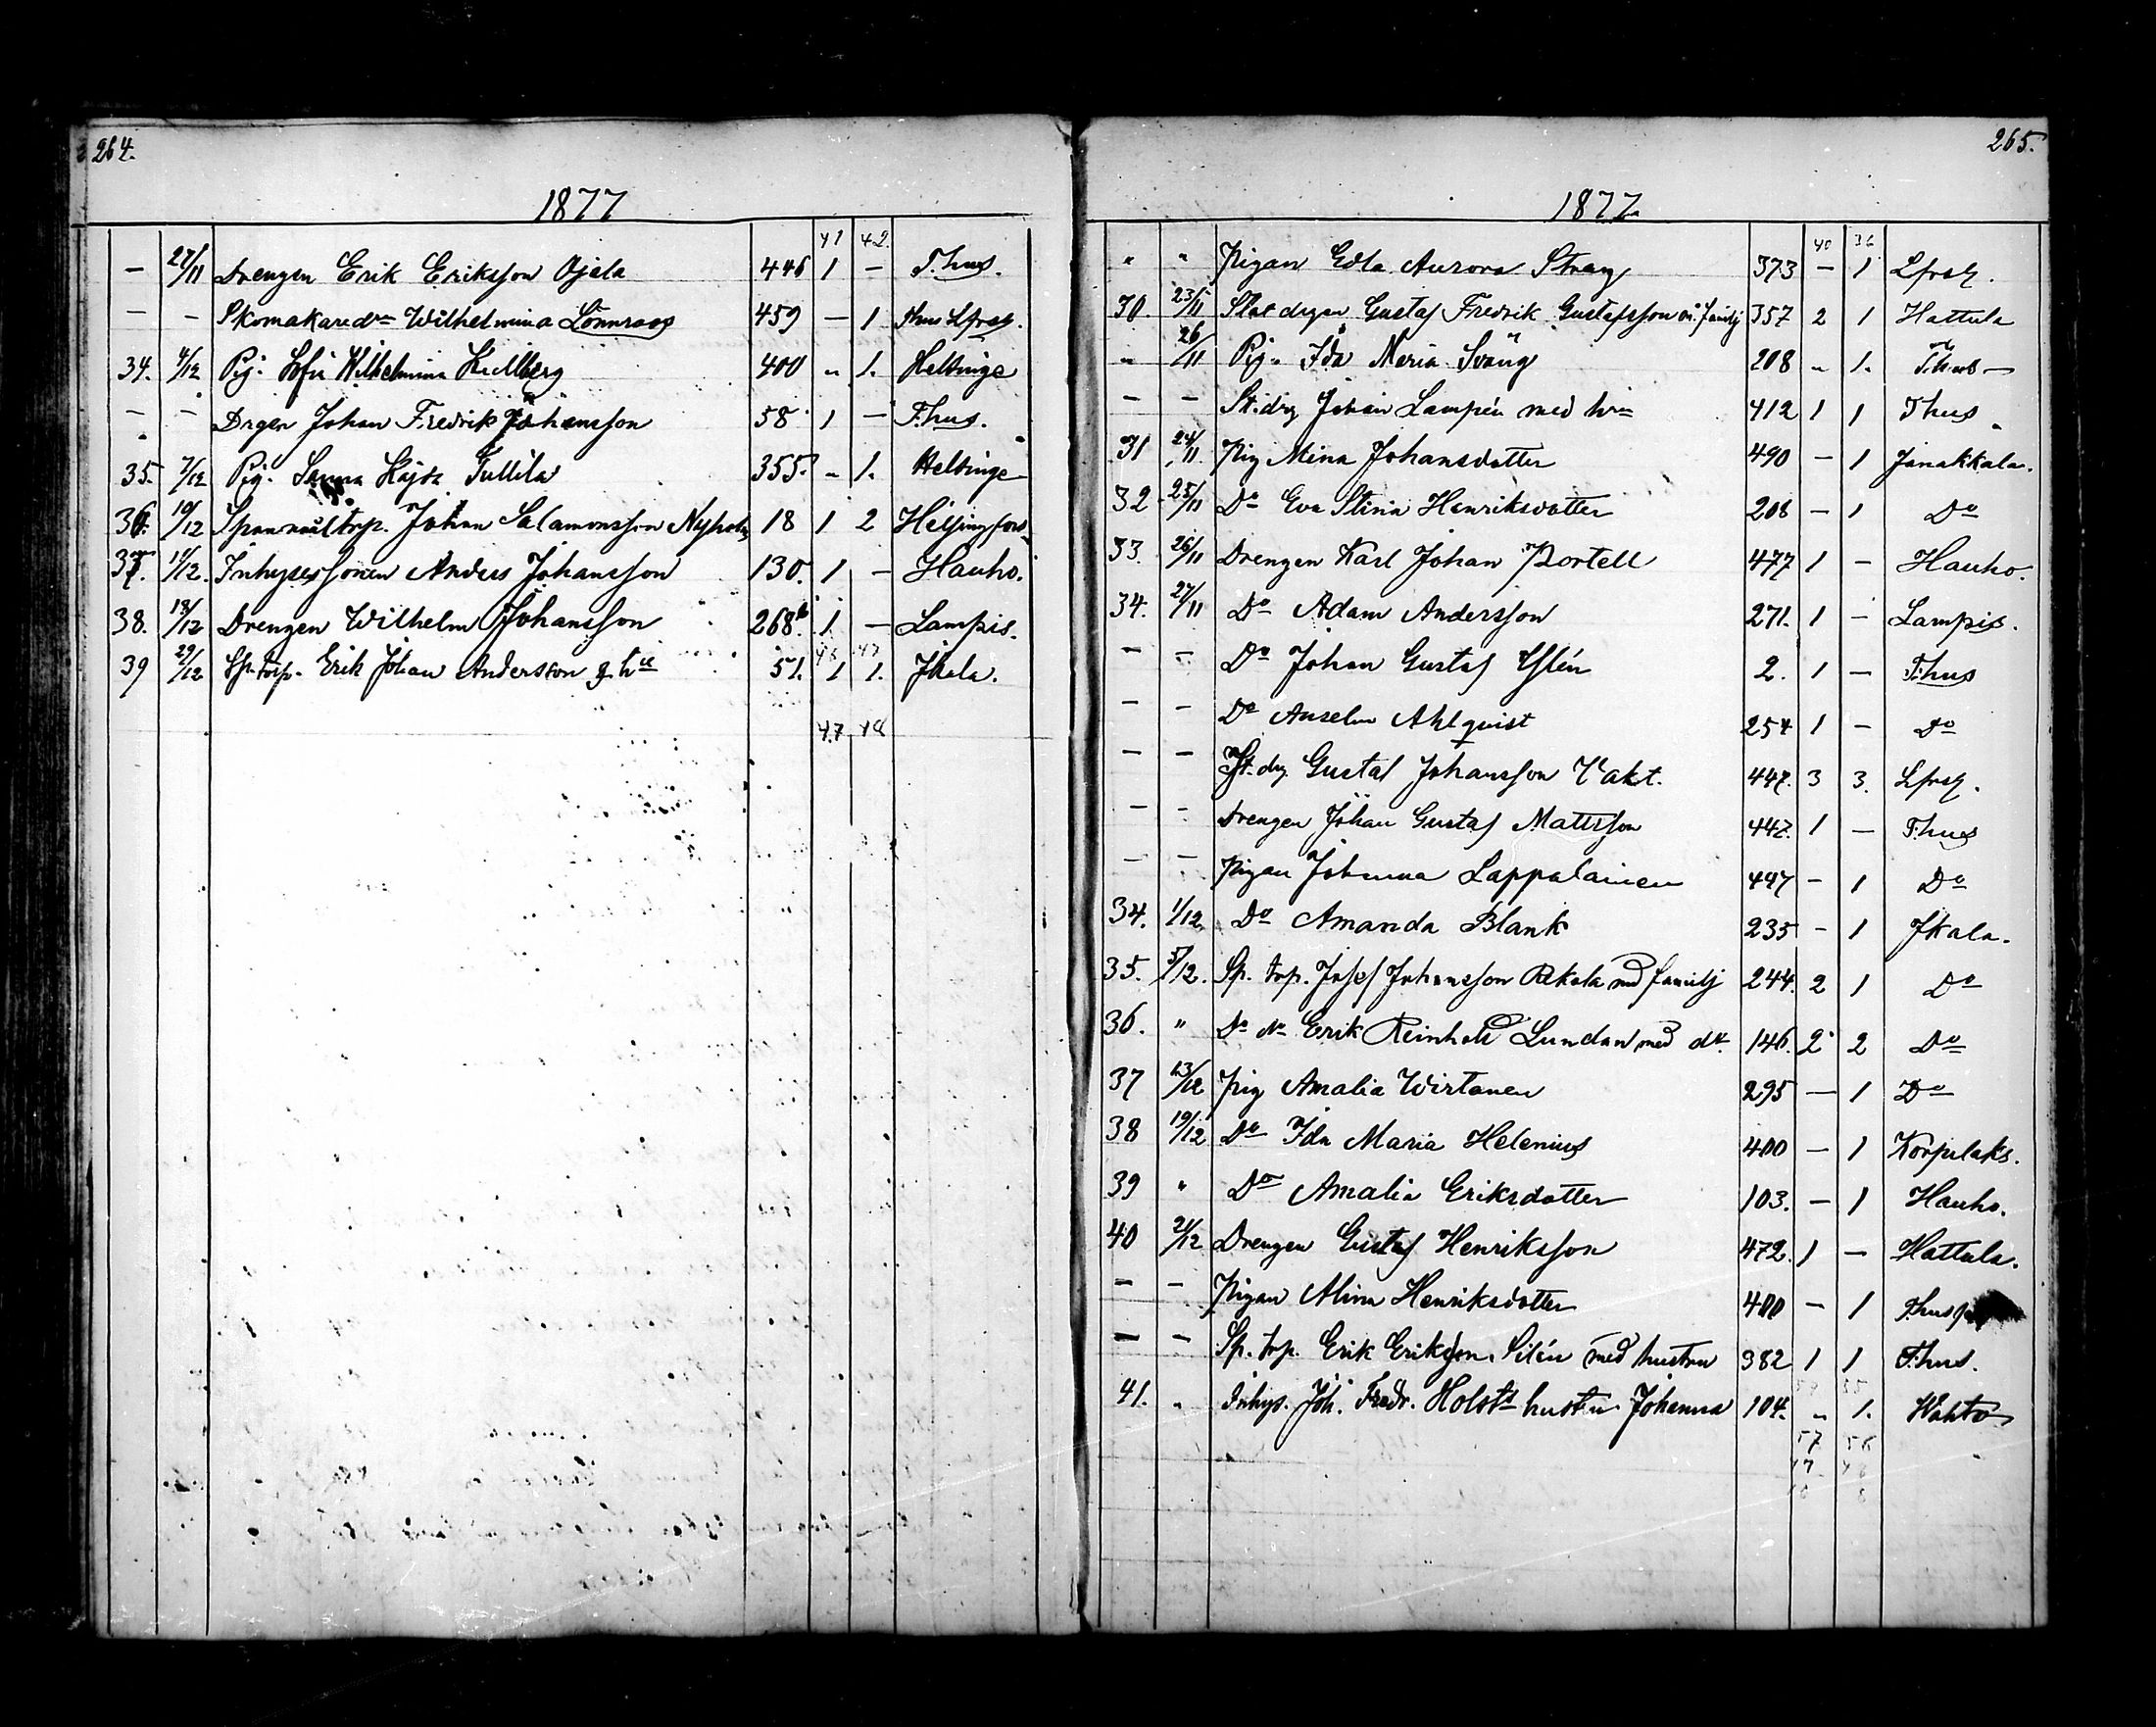 264.
1877
41 42
— 27/11 Drengen Erik Eriksson Ojala 446 1 — T.hus.
— — Skomakaredrn Wilhelmina Lönnroos 459 — 1 Thus Lfrsg.
34. 4/12 Pig. Sofia Wilhelmina Kullberg 400 „ 1. Helsinge
— — Drgen Johan Fredrik Johansson 58 1 — T.hus.
35. 7/12 Pig. Sanna Kajsa Tullila 355. „ 1. Helsinge
36. 10/12 Spanmåltrp. Johan Salamonsson Nyholm 18 1 2 Helsingfors
37. 11/12. Inhysessonen Anders Johansson 130. 1 — Hauho.
38. 18/12 Drengen Wilhelm Johansson 268b 1 — Lampis.
46 47
39 29/12 Sp. torp. Erik Johan Andersson 51. 1 1. Jkala.
47 48
265.
1877.
40 36
„ „ Pigan Edla Aurora Strang 373 — 1 Lfrsg.
30. 23/11 Statdrgen Gustaf Fredrik Gustafsson m. familj 357 2 1 Hattula
„ 26/11 Pig. Ida Maria Sväng 208 „ 1. T.hus
— — St.drg Johan Lampén med hu 412 1 1 Thus
31 24/11. Pig Mina Johansdotter 490 — 1 Janakkala.
32 25/11 Do Eva Stina Henriksdotter 208 — 1 Do
33. 26/11 Drengen Karl Johan Portell 477 1 — Hauho.
34. 27/11 Do Adam Andersson 271. 1 — Lampis.
— — Do Johan Gustaf 2. 1 — T.hus
— — Do Anselm Ahlqvist 254 1 — Do
— — St.drg Gustaf Johansson Vakt. 447. 3 3. Lfrsg.
— — Drengen Johan Gustaf Mattsson 447. 1 — T.hus
— — Pigan Johanna Lappalainen 447 — 1 Do
34. 1/12 Do Amanda Blank 235 — 1 Jkala.
35. 5/12. Sp. trp. Josef Johansson Rekola med familj 244. 2 1 Do
36. „ Do do Erik Reinhold Lundan med do. 146. 2 2 Do
37 13/12 Pig Amalia Wirtanen 295 — 1 Do
38 19/12 Do Ida Maria Helenius 400 — 1 Korpilaks.
39 „ Do Amalia Eriksdotter 103. — 1 Hauho.
40 21/12 Drengen Gustaf Henriksson 472. 1 — Hattula.
— — Pigan Alina Henriksdotter 400 — 1 Thus
— — Sp. trp. Erik Eriksson Silén med hustru 382 1 1 T.hus.
41. „ Inhys. Joh. Fredr. Holsts hustru Johanna 104. „ 1. Wahto
57
47